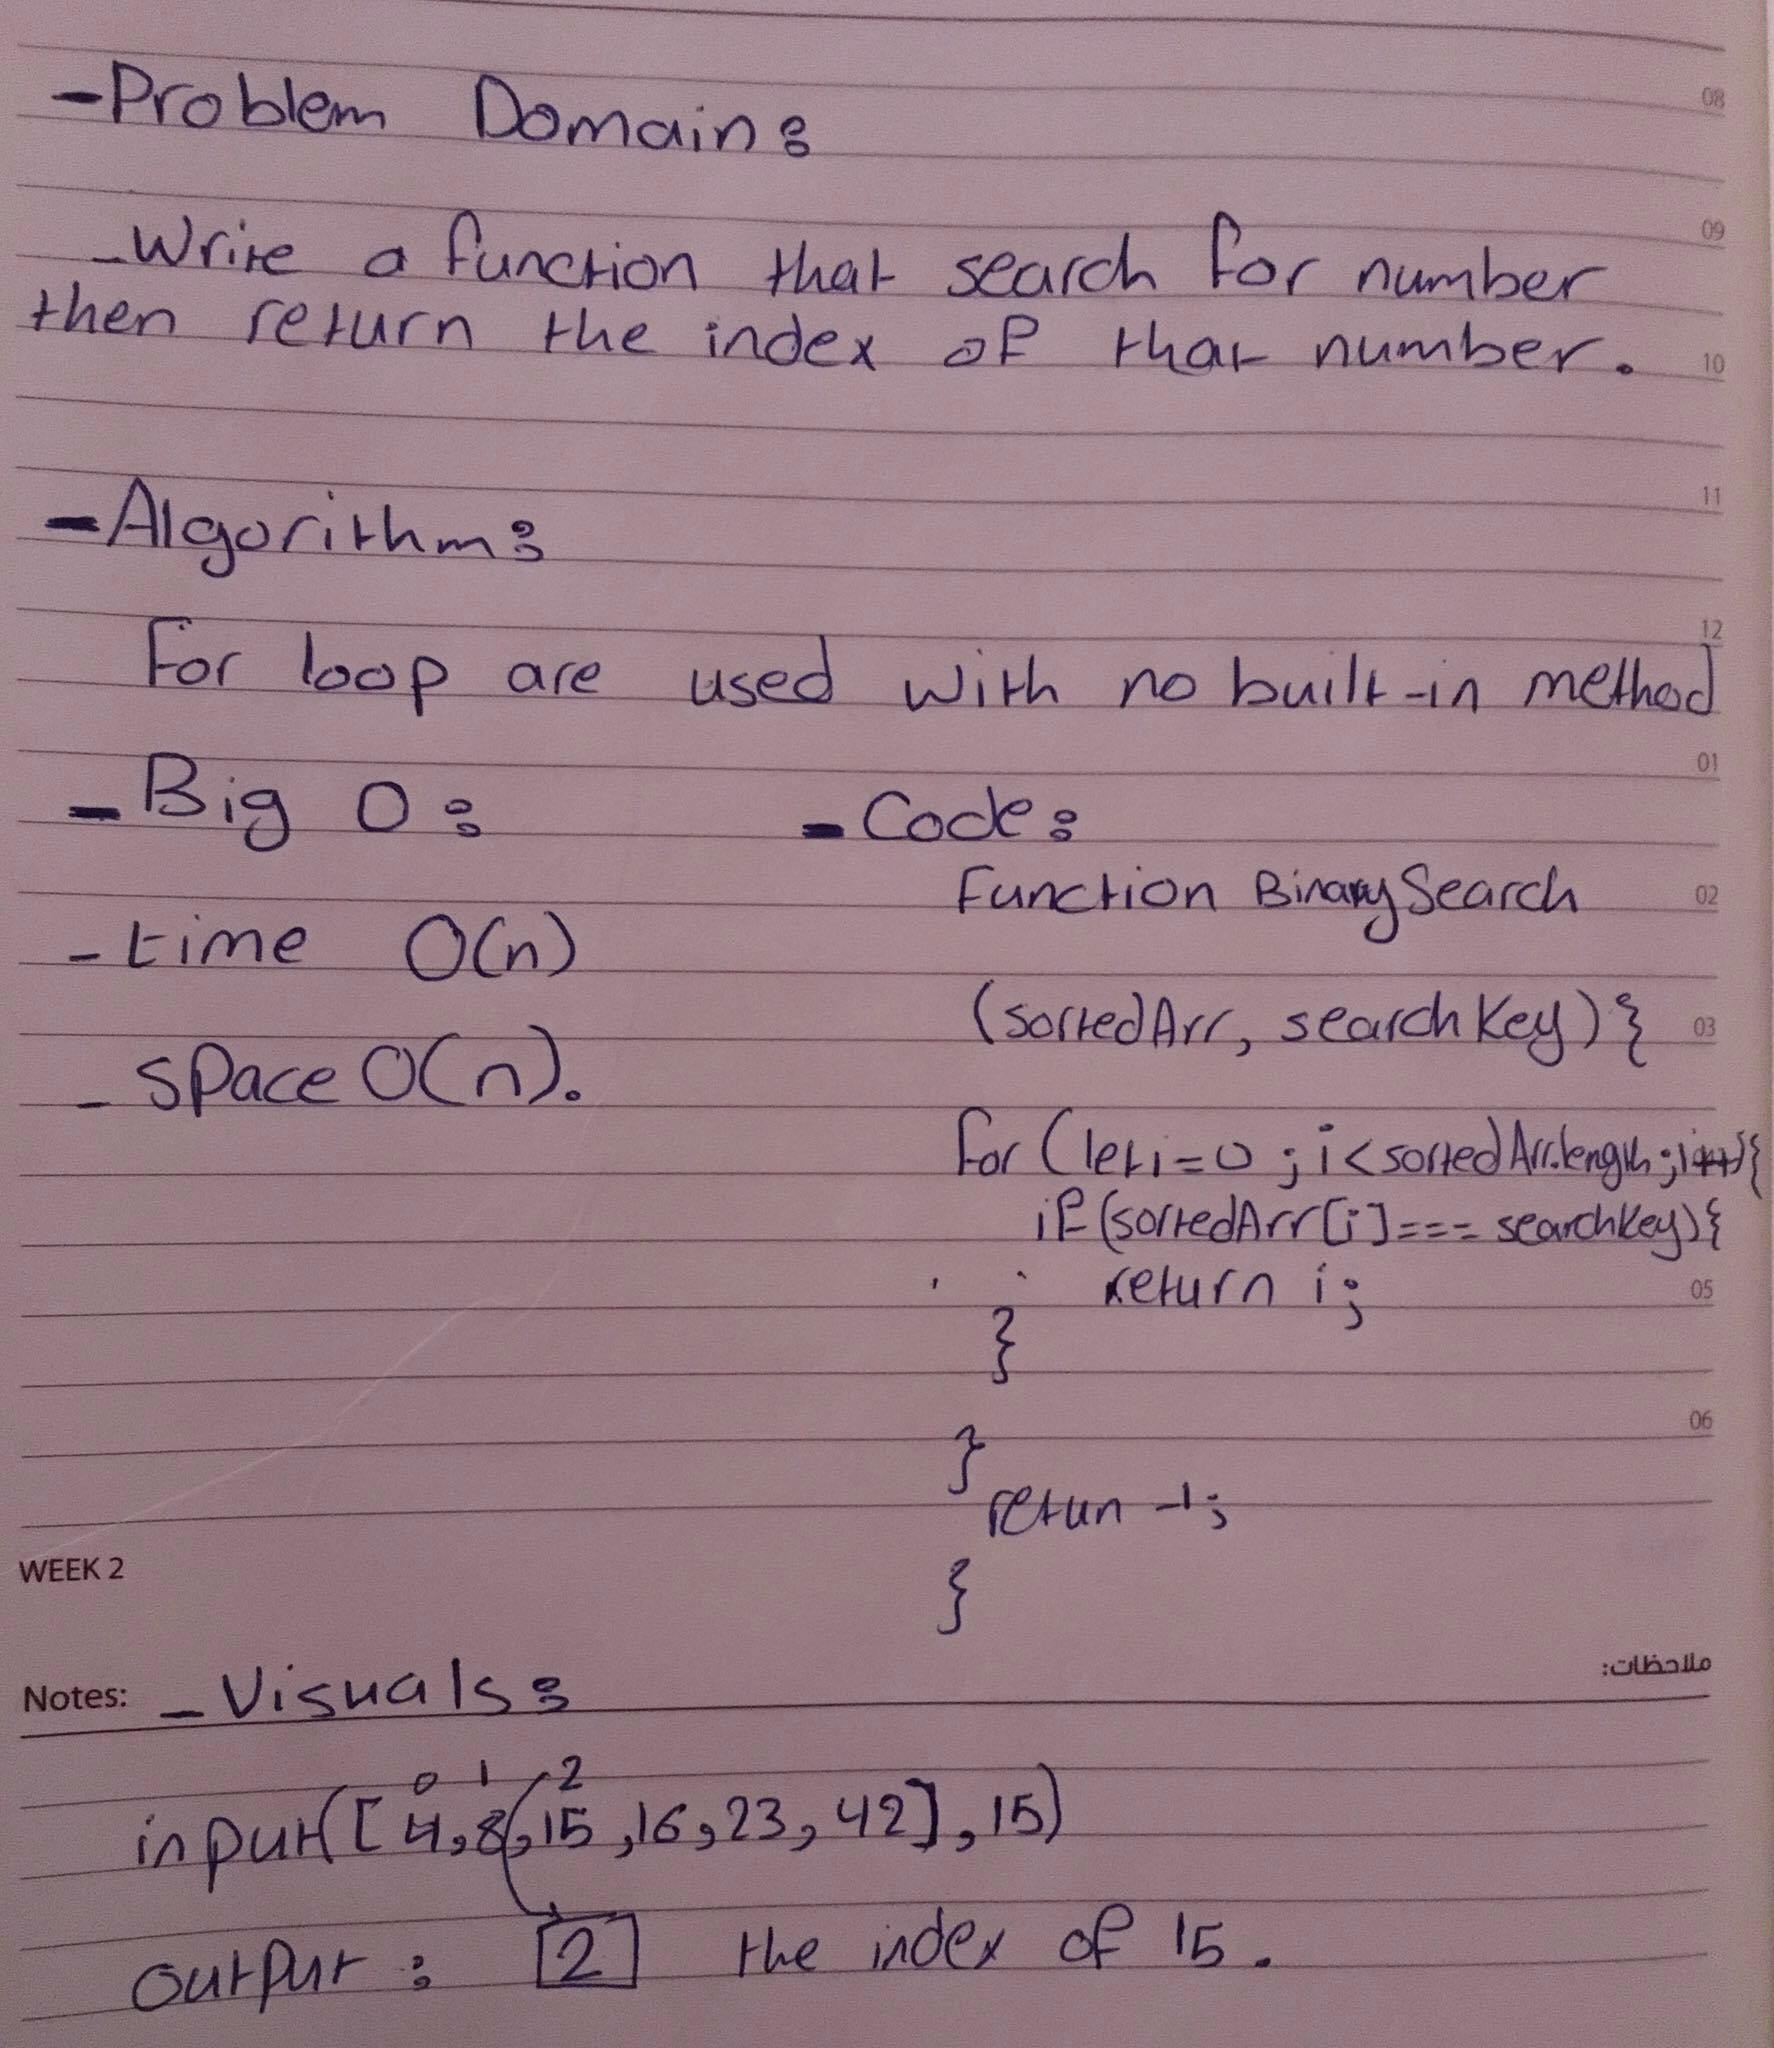 08
- Problem Domain:
09
- Write a function that search for number
then return the index of that number.
10
11
- Algorithm:
12
For loop are used with no built-in method
01
- Big O:
- time O(n)
- space O(n).
- Code:
Function BinarySearch
02
(sortedArr, searchKey){
03
for (let i=0; i<sortedArr.length; i++){
if (sortedArr[i]=== searchkey){
return i;
05
}
06
}
retun -1;
}
WEEK 2
Notes:
ملاحظات:
- Visuals:
0 1 2
input([4,8,15,16,23,42],15)
output: 2 the index of 15.